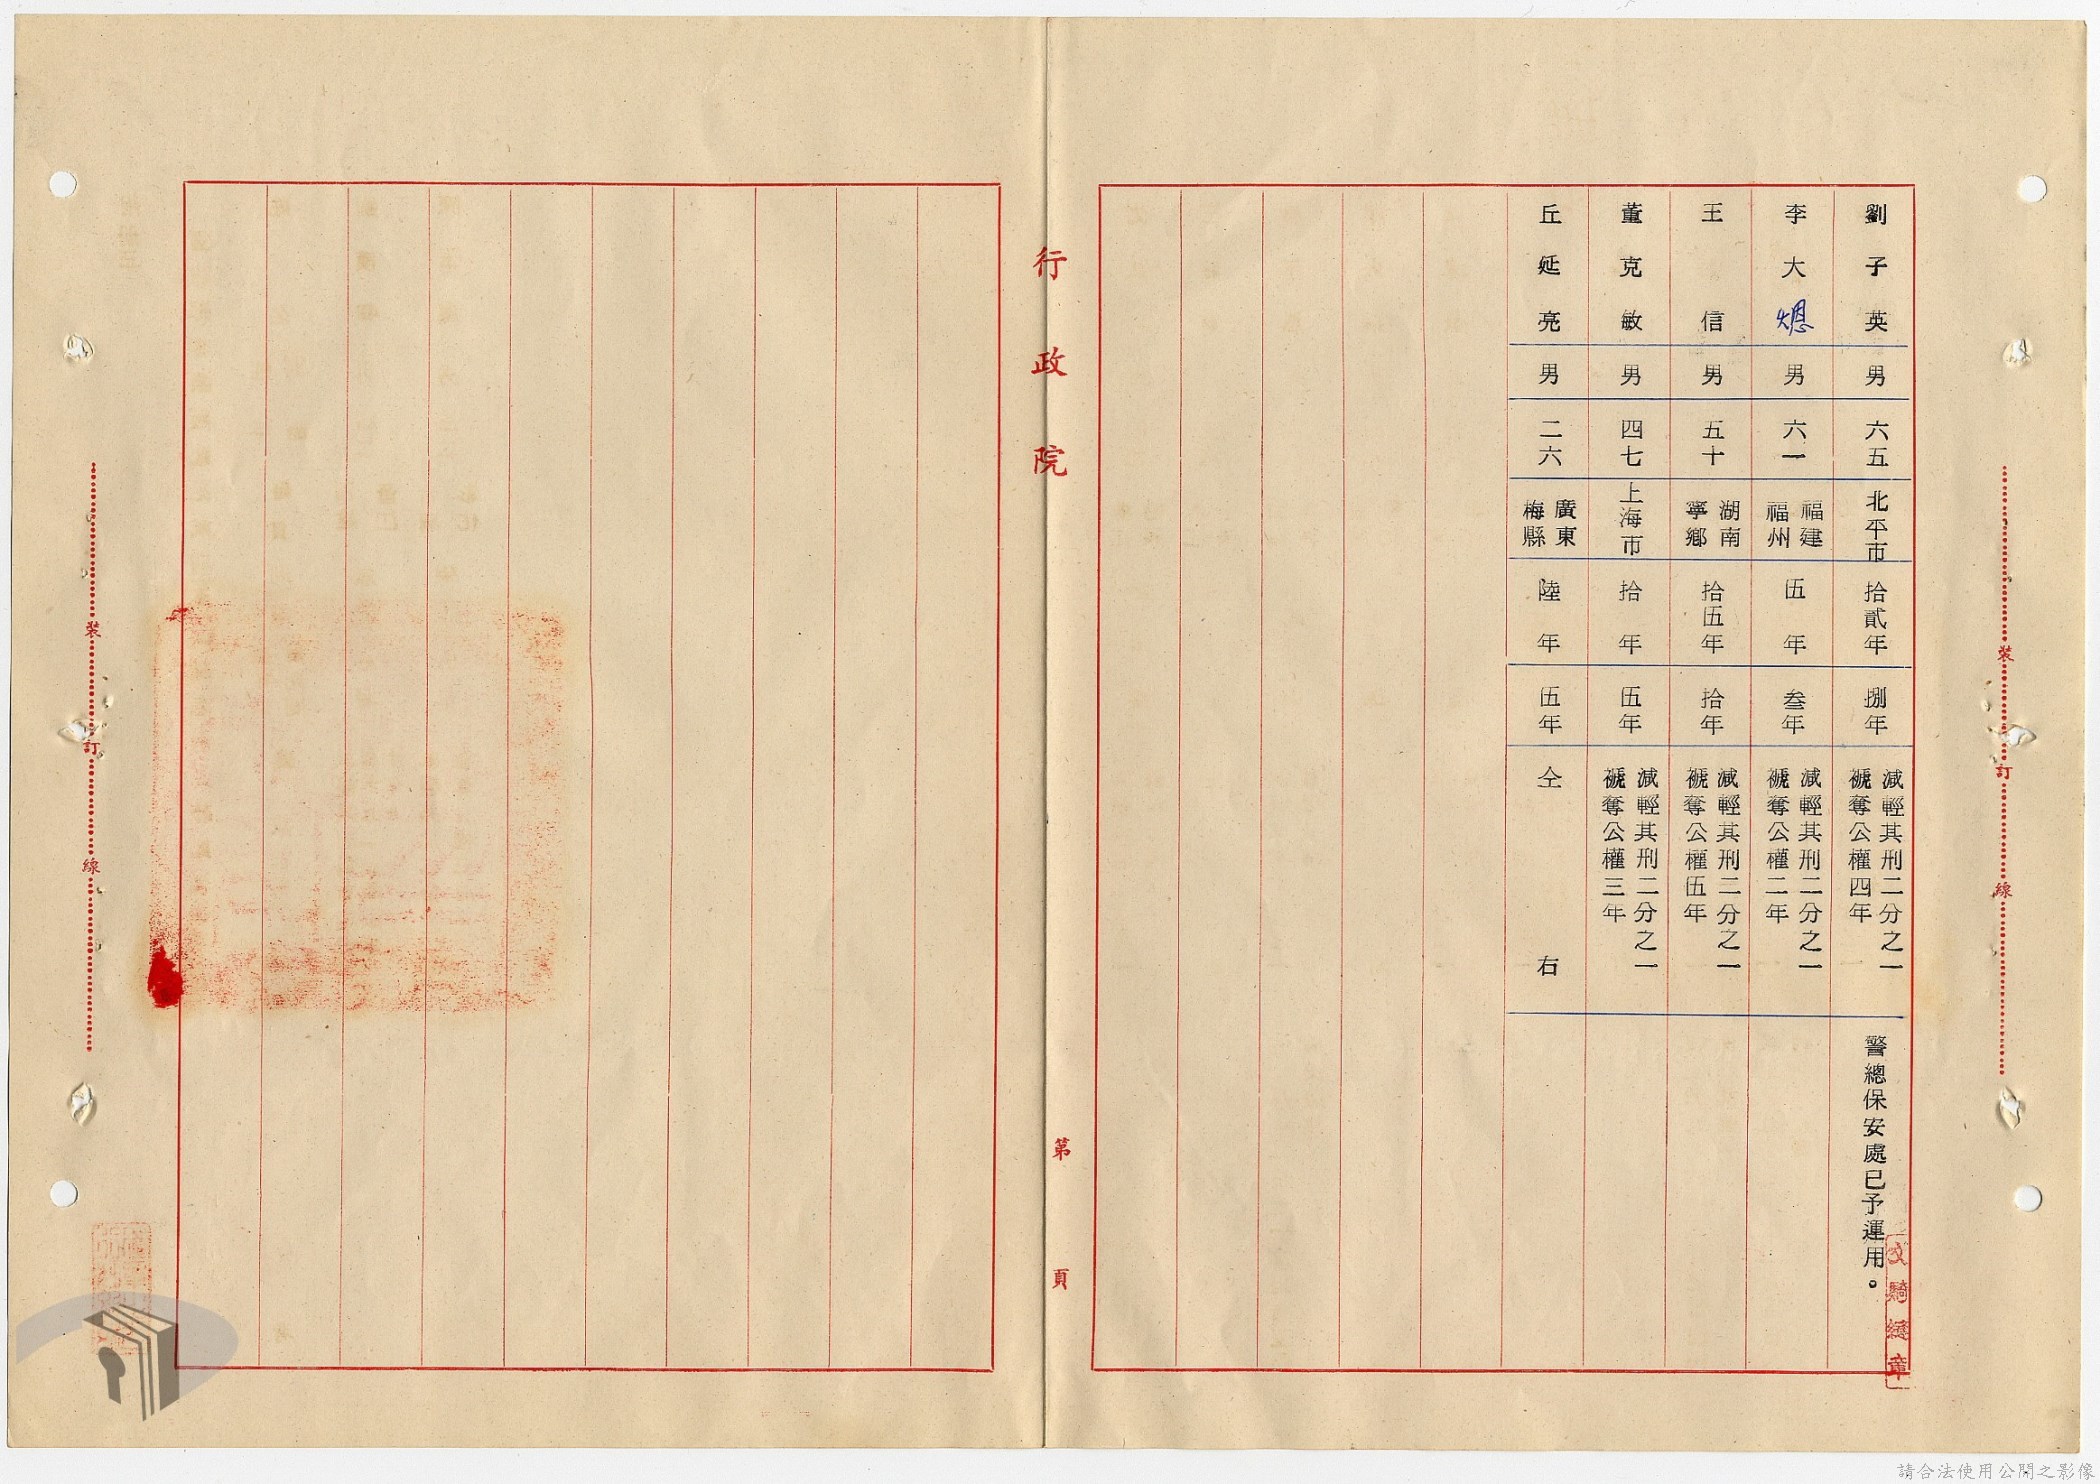 劉子英 男 六五 北平市 拾貳年 捌年 減輕其刑二分之一
褫奪公權四年
警總保安處已予運用。
李大熜 男 六一 福建
福州 伍年 叁年 減輕其刑二分之一
褫奪公權二年
王信 男 五十 湖南
寧鄉 拾伍年 拾年 減輕其刑二分之一
褫奪公權伍年
董克敏 男 四七 上海市 拾年 伍年 減輕其刑二分之一
褫奪公權三年
丘延亮 男 二六 廣東
梅縣 陸年 伍年 仝右
行政院
第 頁
裝訂線
裝訂線
請合法使用公開之影像